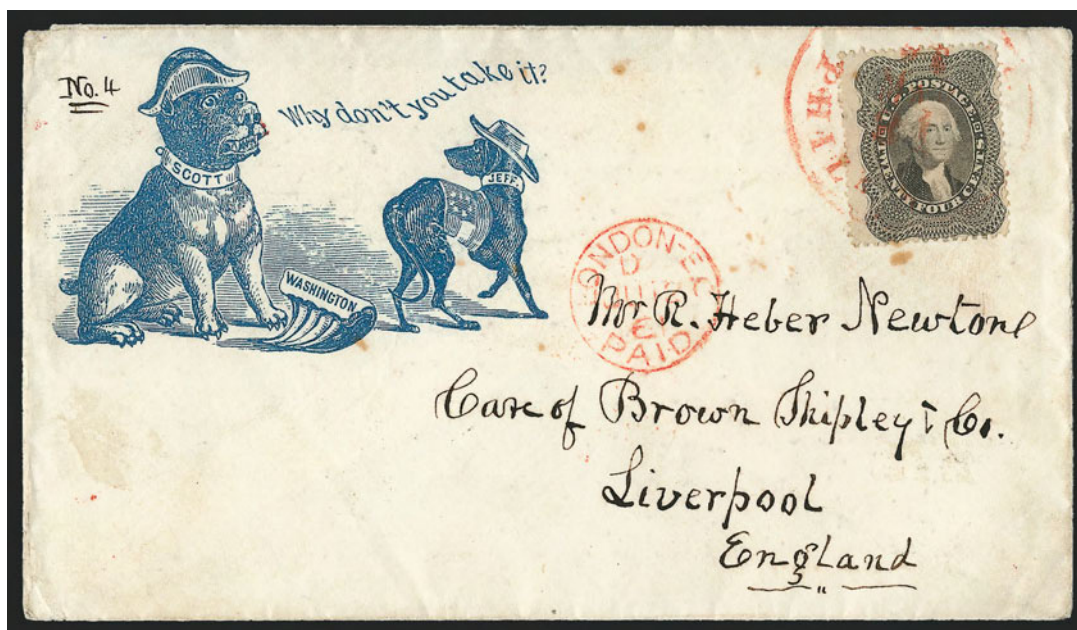 No. 4
Why don't you take it?
SCOTT
JEFF.
WASHINGTON
PHIL
U.S. POSTAGE
TWENTY FOUR CENTS
LONDON-EC
PAID
Mr R. Heber Newton
Care of Brown Shipley & Co.
Liverpool
England